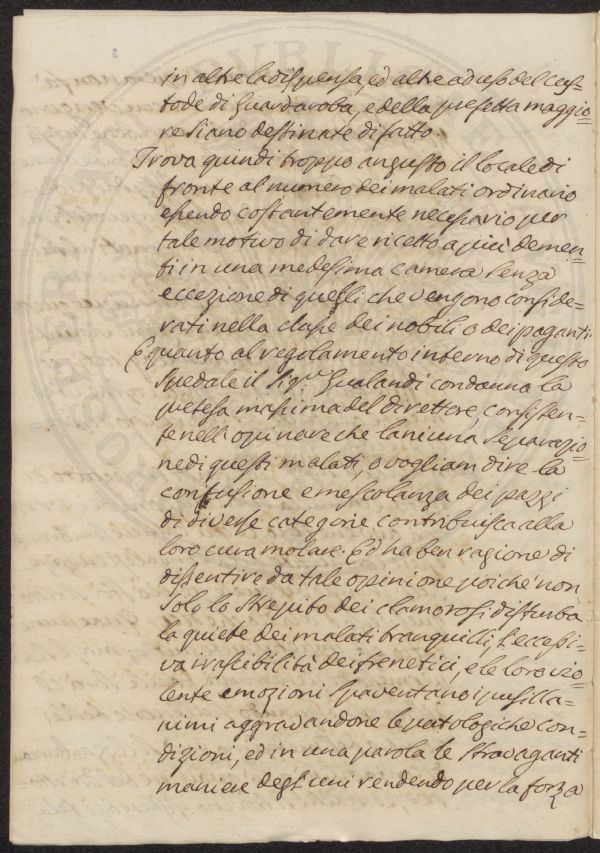 in altre la dispensa, ed altre ad uso del Cus-
tode di Guardaroba, e della prefetta maggio=
re siano destinate di fatto.
Trova quindi troppo angusto il locale di
fronte al numero dei malati ordinario
essendo costantemente necessario per
tale motivo di dare ricetto a più demen=
ti in una medesima camera senza
eccezione di quegli che vengono conside=
rati nella classe dei nobili o dei paganti.
E quanto al regolamento interno di questo
spedale il Sig.r Gualandi condanna la
pretesa massima del direttore, consisten=
te nell'opinare che la niuna separazio=
ne di questi malati, o vogliam dire la
confusione e mescolanza dei pazzi
di diverse categorie contribuisca alla
loro cura molare. Ed ha ben ragione di
dissentire da tale opinione poiché non
solo lo strepito dei clamorosi disturba
la quiete dei malati tranquilli, l'eccessi-
va irascibilità dei frenetici, e le loro vio=
lente emozioni spaventano i pusilla=
nimi aggravandone le patologiche con=
dizioni, ed in una parola le stravaganti
maniere degli uni rendendo per la forza